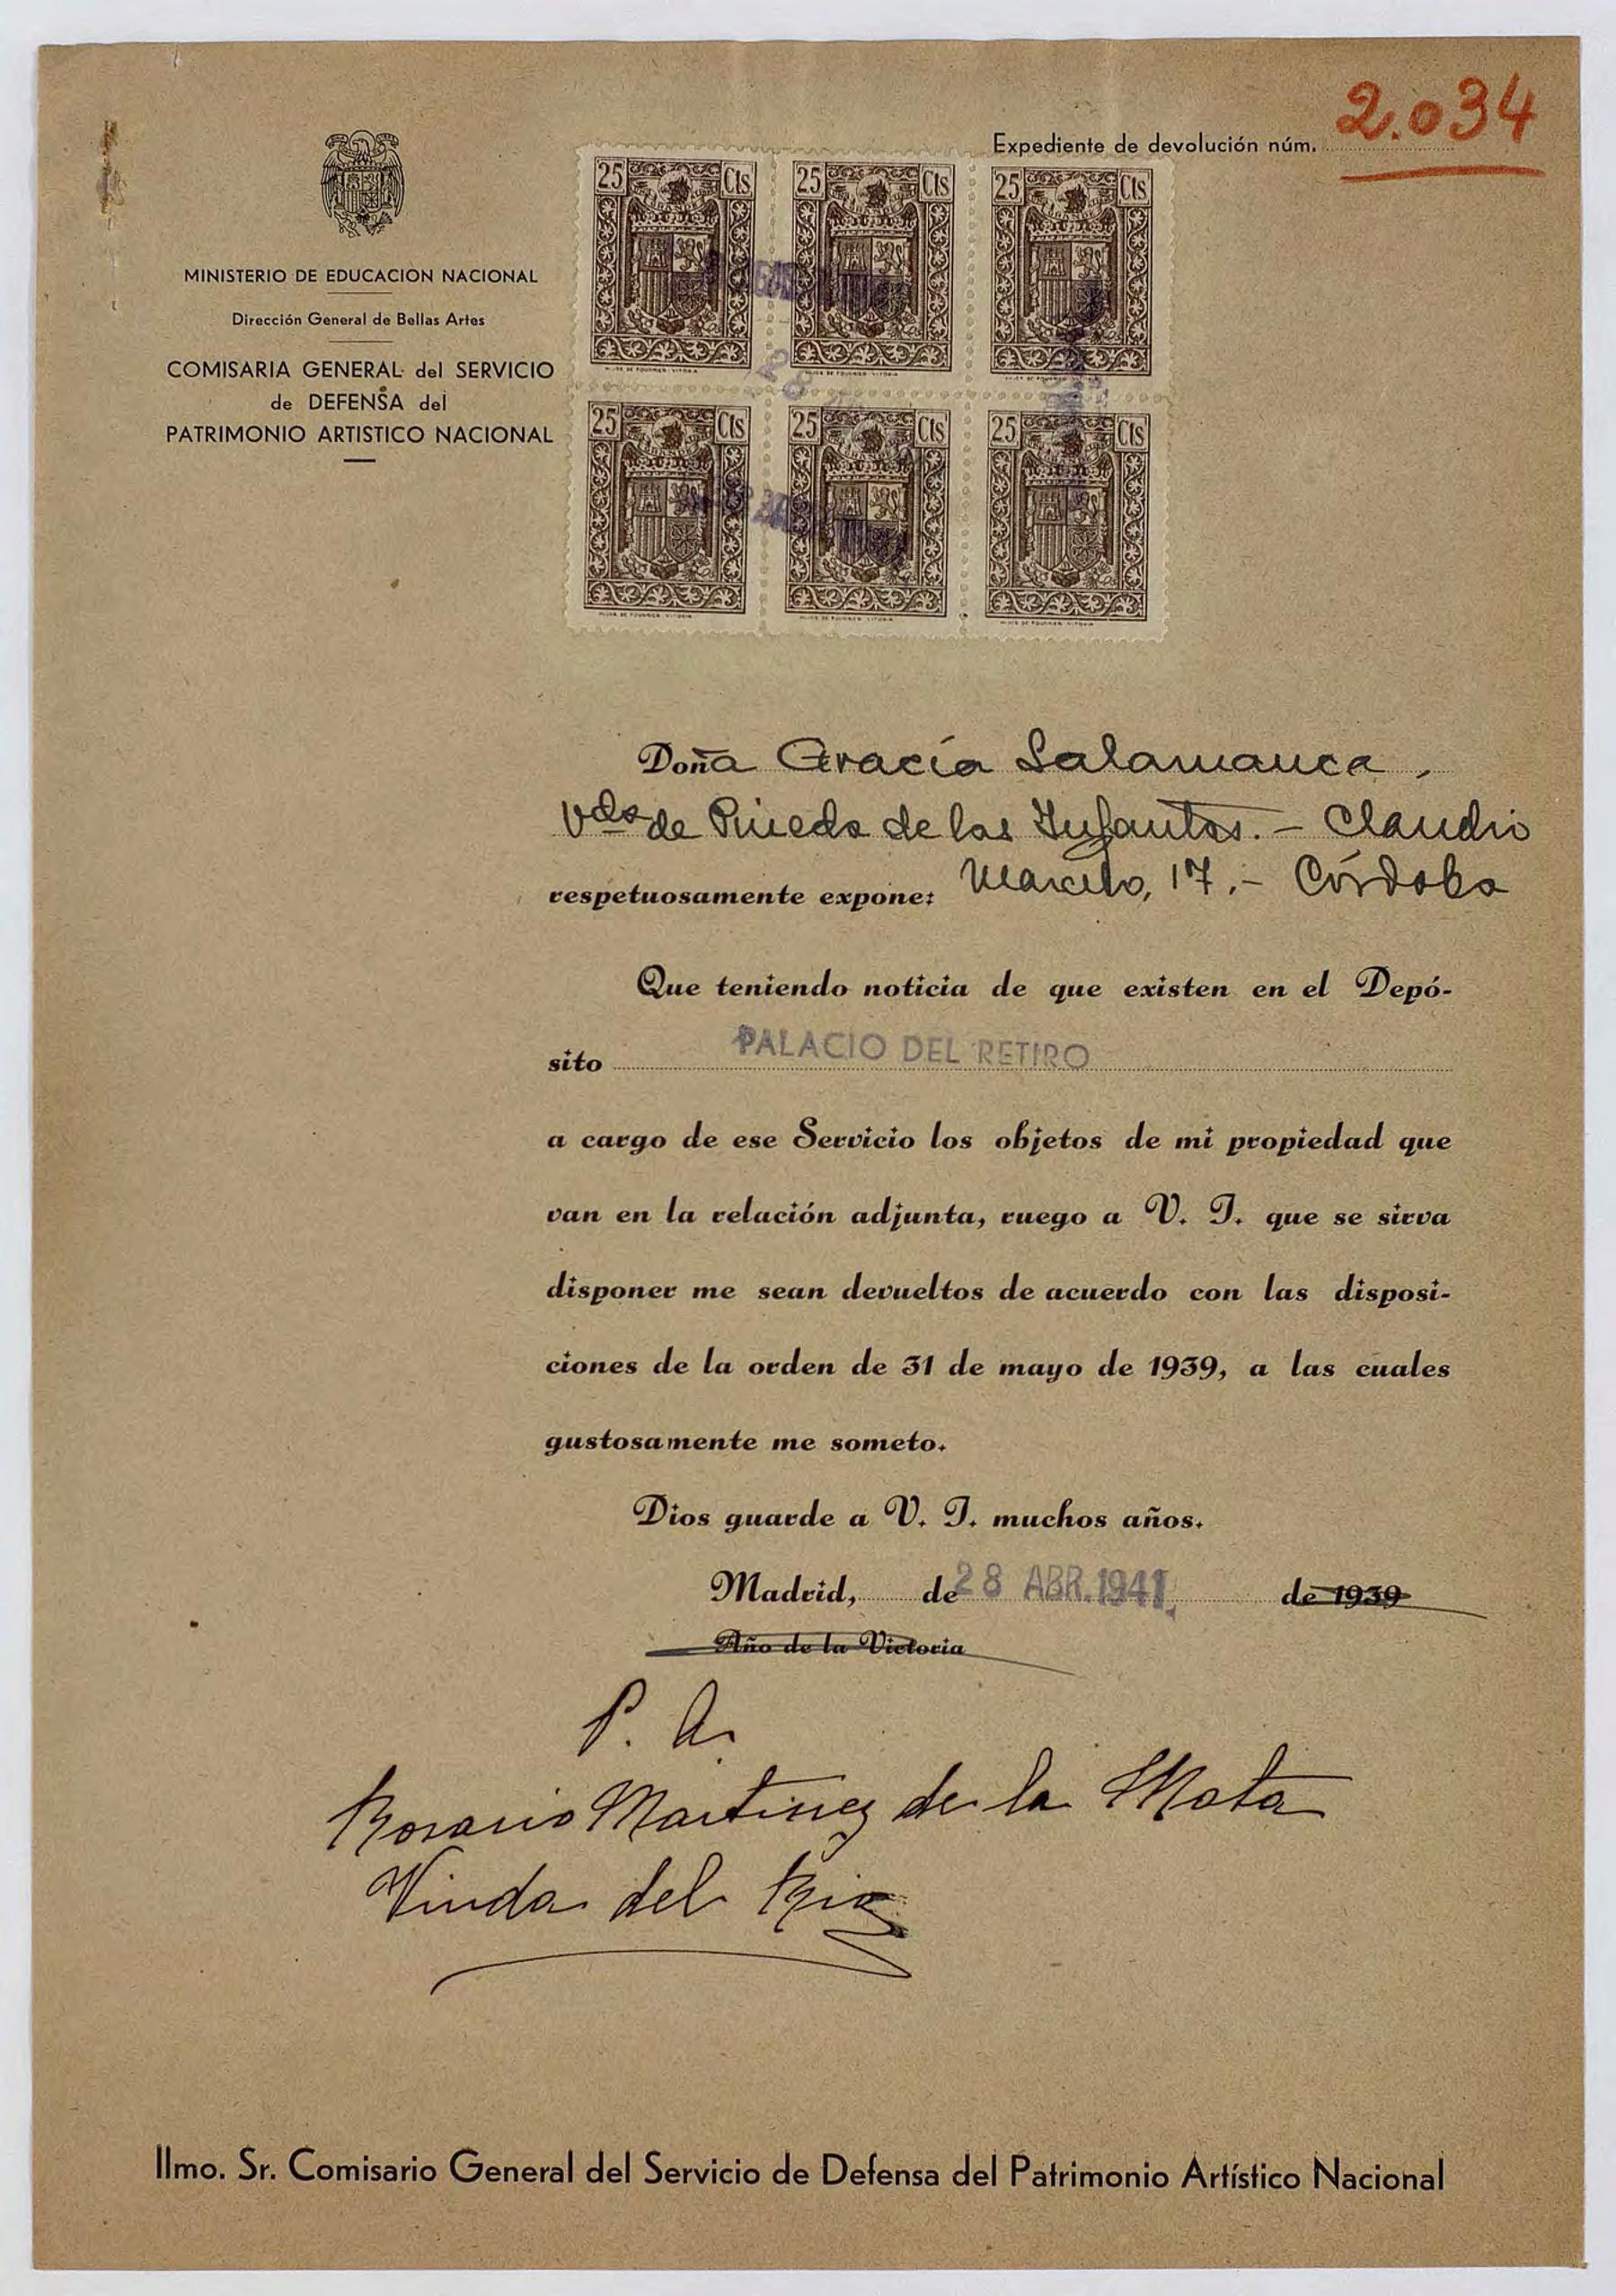 Expediente de devolución núm. 2.034
MINISTERIO DE EDUCACION NACIONAL
Dirección General de Bellas Artes
COMISARIA GENERAL del SERVICIO
de DEFENSA del
PATRIMONIO ARTISTICO NACIONAL
25 Cts 25 Cts 25 Cts
HIJOS DE FOURNIER - VITORIA
28
25 Cts 25 Cts 25 Cts
HIJOS DE FOURNIER - VITORIA HIJOS DE FOURNIER - VITORIA HIJOS DE FOURNIER - VITORIA
Doña Gracia Salamanca,
Vda de Pineda de las Infantas. - Claudio
respetuosamente expone: Marcelo, 17.- Córdoba
Que teniendo noticia de que existen en el Depó-
sito PALACIO DEL RETIRO
a cargo de ese Servicio los objetos de mi propiedad que
van en la relación adjunta, ruego a V. I. que se sirva
disponer me sean devueltos de acuerdo con las disposi-
ciones de la orden de 31 de mayo de 1939, a las cuales
gustosamente me someto.
Dios guarde a V. I. muchos años.
Madrid, de 28 ABR. 1941. de 1939
Año de la Victoria
P. A.
Rosario Martinez de la Mota
Viuda del Rio
Ilmo. Sr. Comisario General del Servicio de Defensa del Patrimonio Artístico Nacional